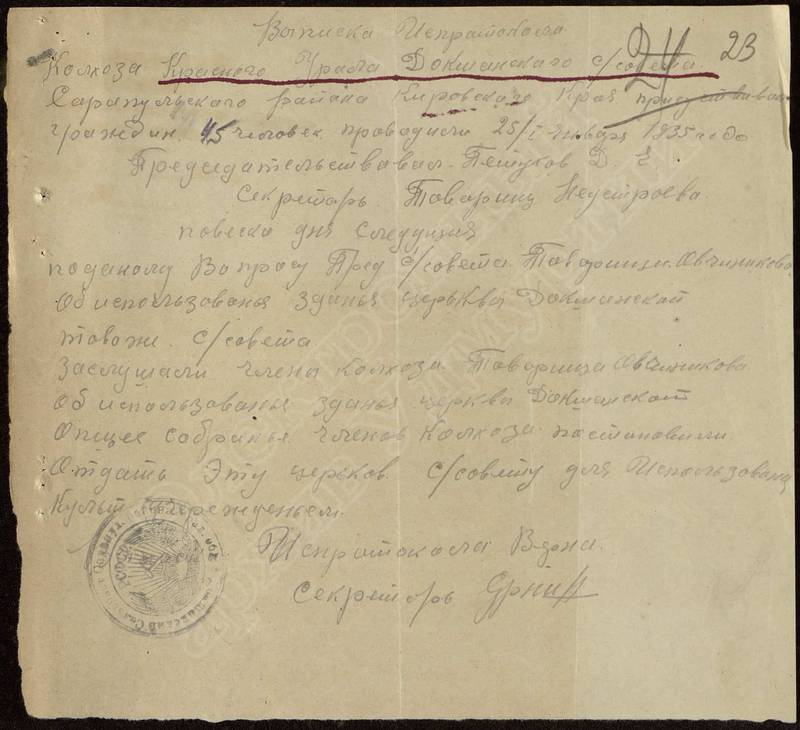 Выписка Испратокола
24 23
Колхоза Красного Урала Докшанского с/совета.
Сарапульского района Кировского Края присуствивали
граждан. 45 человек проводили 25/I января 1935 года
Председательствавал. Пешуков Д. Е
Секретарь. Товарищ Неустроева.
повеска дня следущия
поданому Вопросу Пред с/совета. Товарищ. Овчиникова
Об использованья зданья церьквы Докшанской
тоже. с/совета
Заслушали члены колхоза. Товарища Овчиникова
Об использованья зданья церквы Докшанской
Опщее собранье членов Колхоза. пастановили
Отдать Эту церьков. с/совету для Использованья
Культ учережденьем.
Испратокола Вдона.
Секреторь